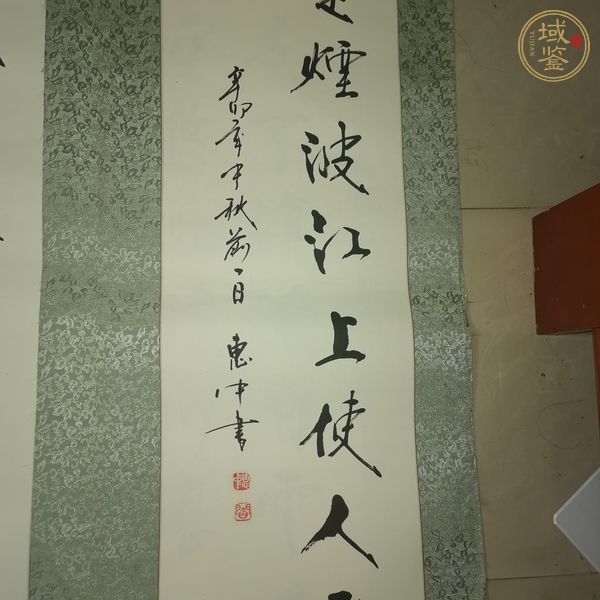 煙波江上使人
辛卯年中秋前一日 惠中書
域鉴
YUJIAN